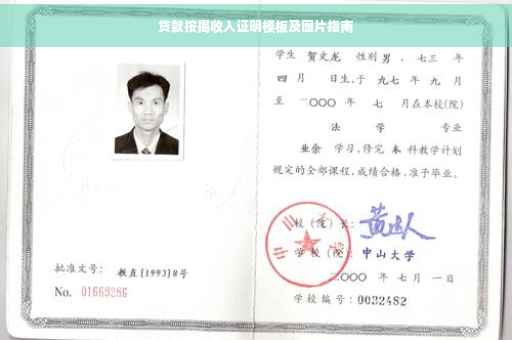 贷款按揭收入证明模板及图片指南
学生 贺文龙 性别 男，七三 年
四 月 日生，于 九七 年 九 月
至 二〇〇〇 年 七 月在本校(院)
法 学 专业
业余 学习，修完 本 科教学计划
规定的全部课程，成绩合格，准予毕业。
校（院）长：
学 校（院）：中山大学
二〇〇〇 年 七 月 一 日
学校编号：0032482
批准文号： 教直[1993]8号
No. 01669286